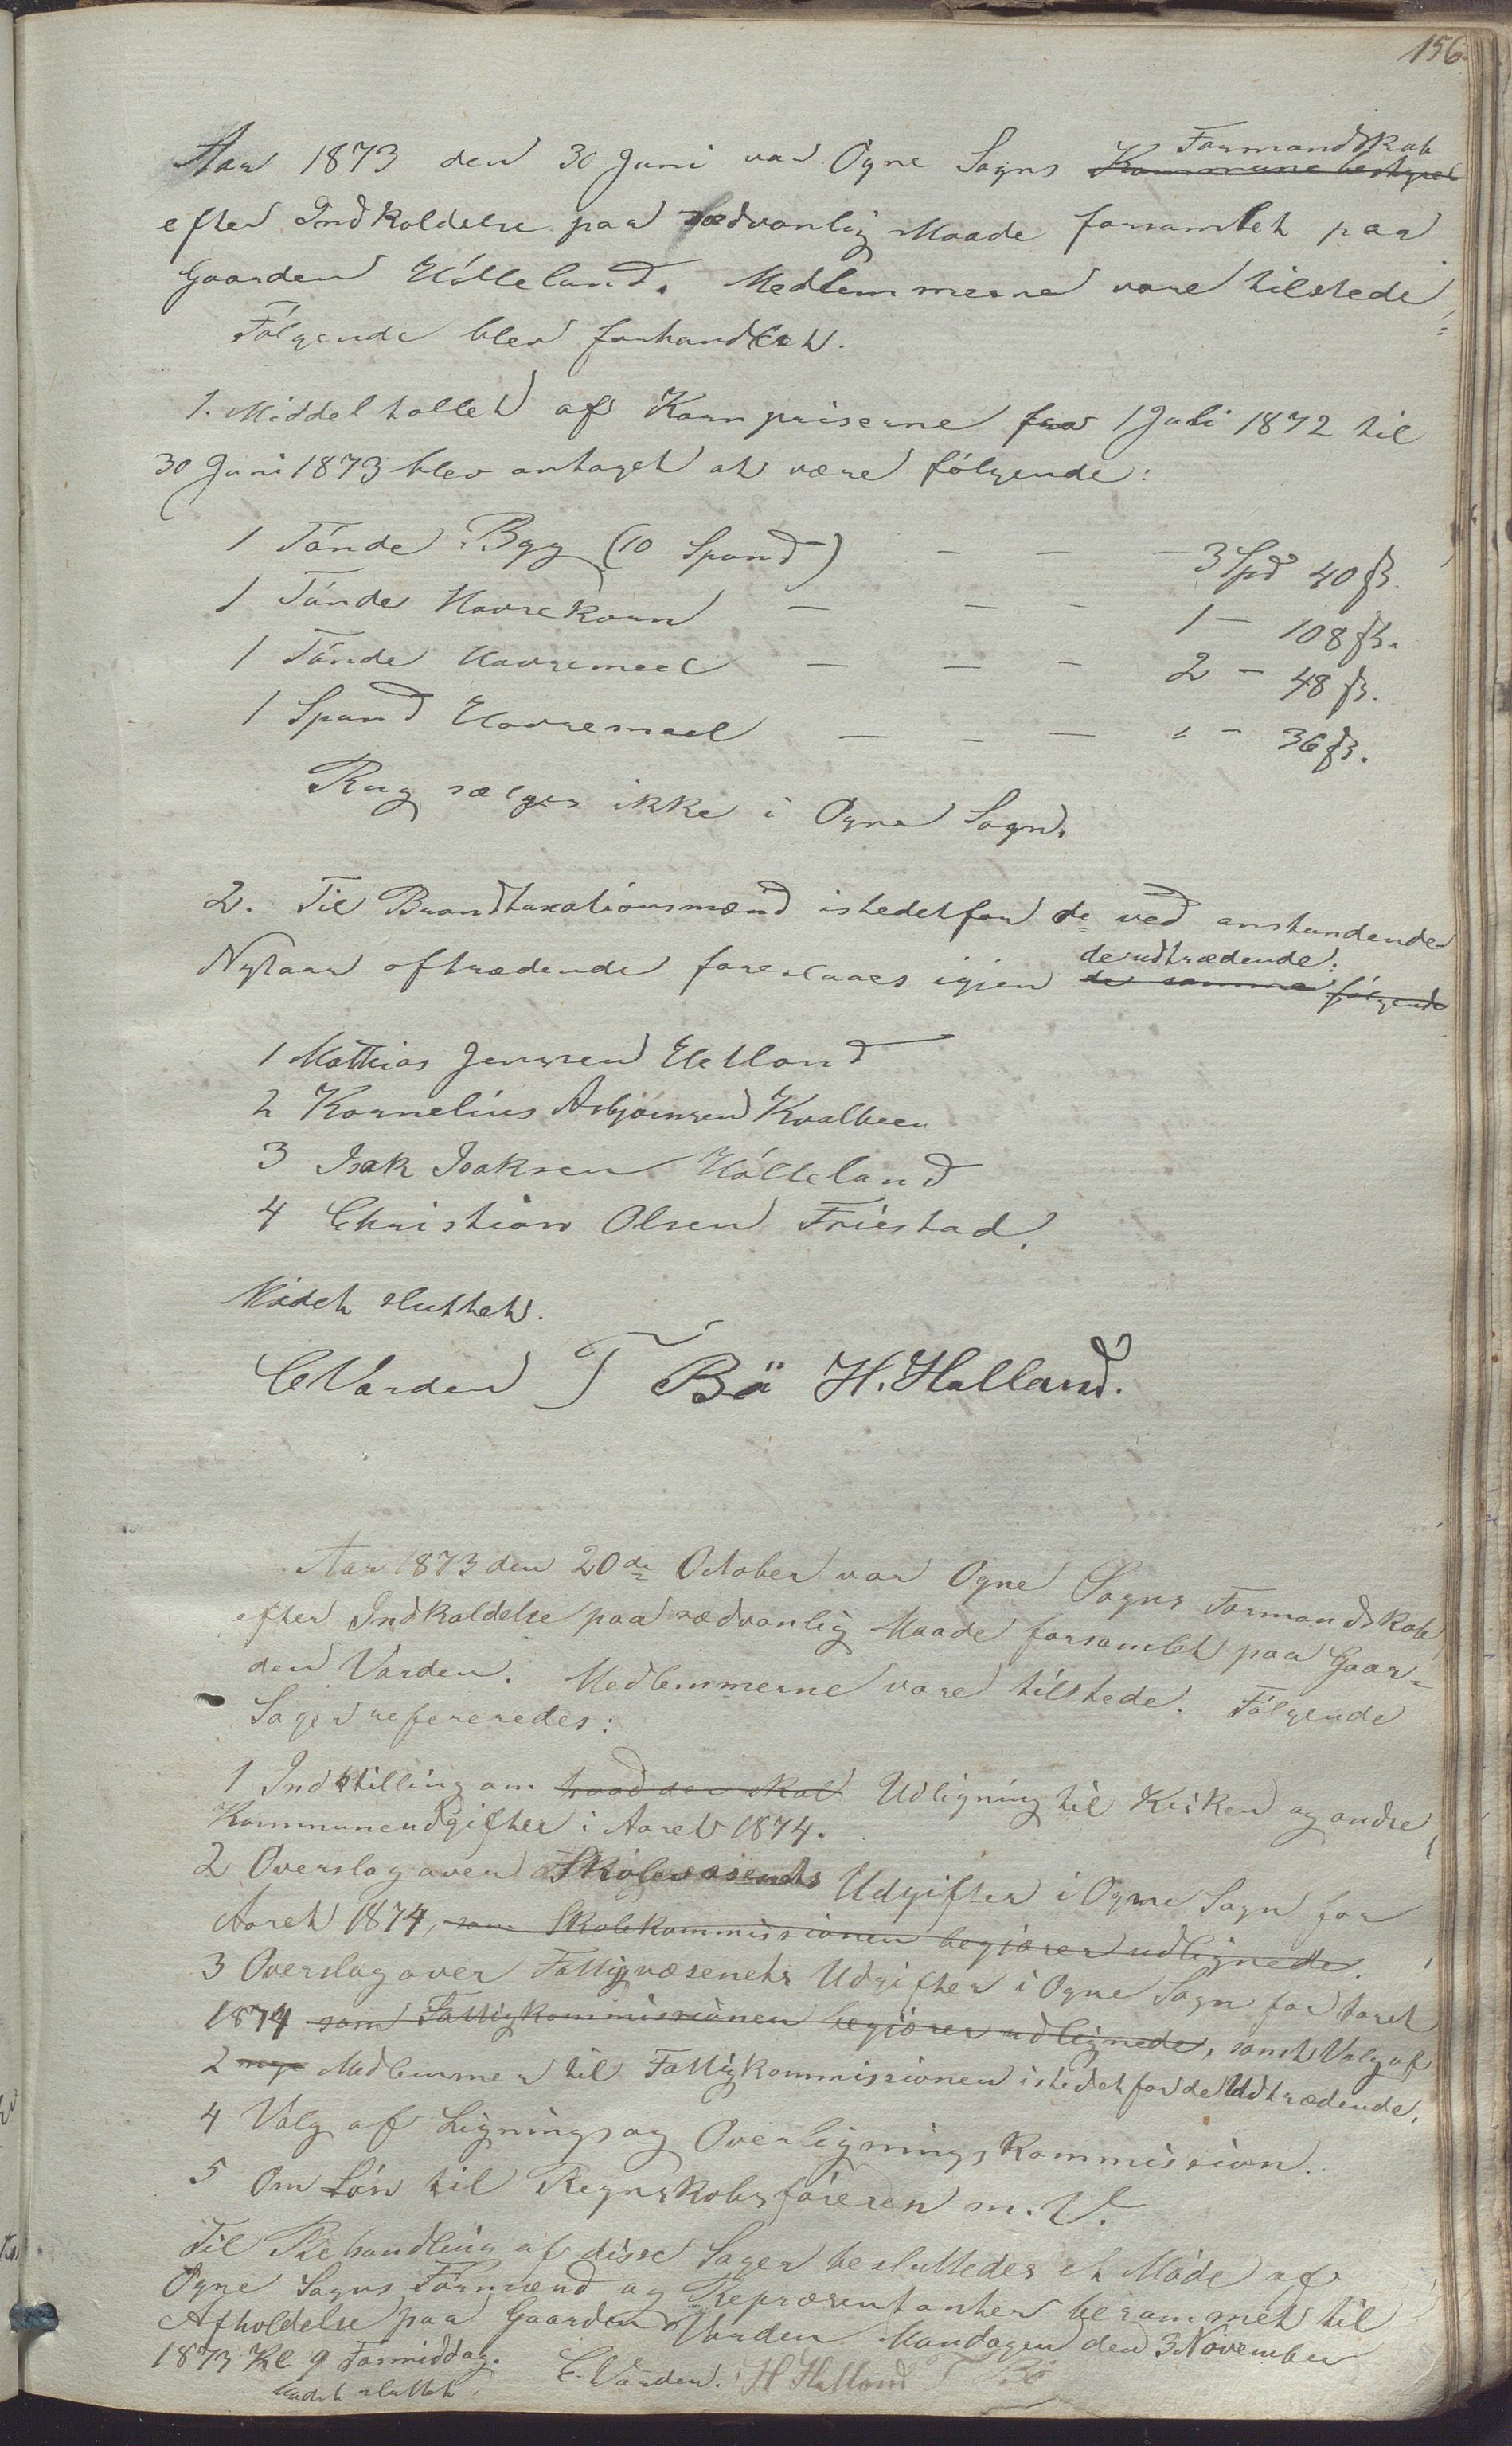 156.
Aar 1873 den 30 Juni var Ogne Sogns Kommunebestyrel Formandskab
efter Indkaldelse paa sædvanlig Maade forsamlet paa
Gaarden Hölleland. Medlemmerne vare tilstede.
Fölgende blev forhandlet.
1. Middeltallet af Kornpriserne fra 1 Juli 1872 til
30 Juni 1873 blev antaget at være fölgende:
1 Tönde Byg (10 Spand) — — — 3 Spd 40 ß.
1 Tönde Havrekorn — — — 1 — 108 ß.
1 Tönde Havremeel — — — 2 — 48 ß.
1 Spand Havremeel — — — " — 36 ß.
Rug sælges ikke i Ogne Sogn.
2. Til Brandtaxationsmænd istedetfor de ved anstundende
Nytaar aftrædende foreslaaes igjen de samme følgende de udtrædende:
1 Mathias Jenssen Hetland
2 Kornelius Asbjörnsen Kvalbeen
3 Isak Isaksen Hölleland
4 Christian Olsen Friestad.
Mödet sluttet.
C Varden T Bö H. Halland.
Aar 1873 den 20de October var Ogne Sogns Formandskab
efter Indkaldelse paa sædvanlig Maade forsamlet paa Gaar-
den Varden. Medlemmerne vare tilstede. Fölgende
Sager refereredes:
1 Indstilling om hvad der skal Udligning til Kirken og andre
Kommuneudgifter i Aaret 1874.
2 Overslag over Skolevæsenets Udgifter i Ogne Sogn for
Aaret 1874, som Skolekommissionen begjærer udlignede.
3 Overslag over Fattigvæsenets Udgifter i Ogne Sogn for Aaret
1874 som Fattigkommissionen begjærer udlignede, samt Valg af
2 nye Medlemmer til Fattigkommissionen istedetfor de Udtrædende.
4 Valg af Lignings og Overligningskommission.
5 Om Lön til Regnskabsföreren m. V.
Til Behandling af disse Sager besluttedes et Möde af
Ogne Sogns Formænd og Repræsentanter berammet til
Afholdelse paa Gaarden Varden Mandagen den 3 November
1873 Kl 9 Formiddag.
Mödet sluttet. C. Varden. H Halland T Bö